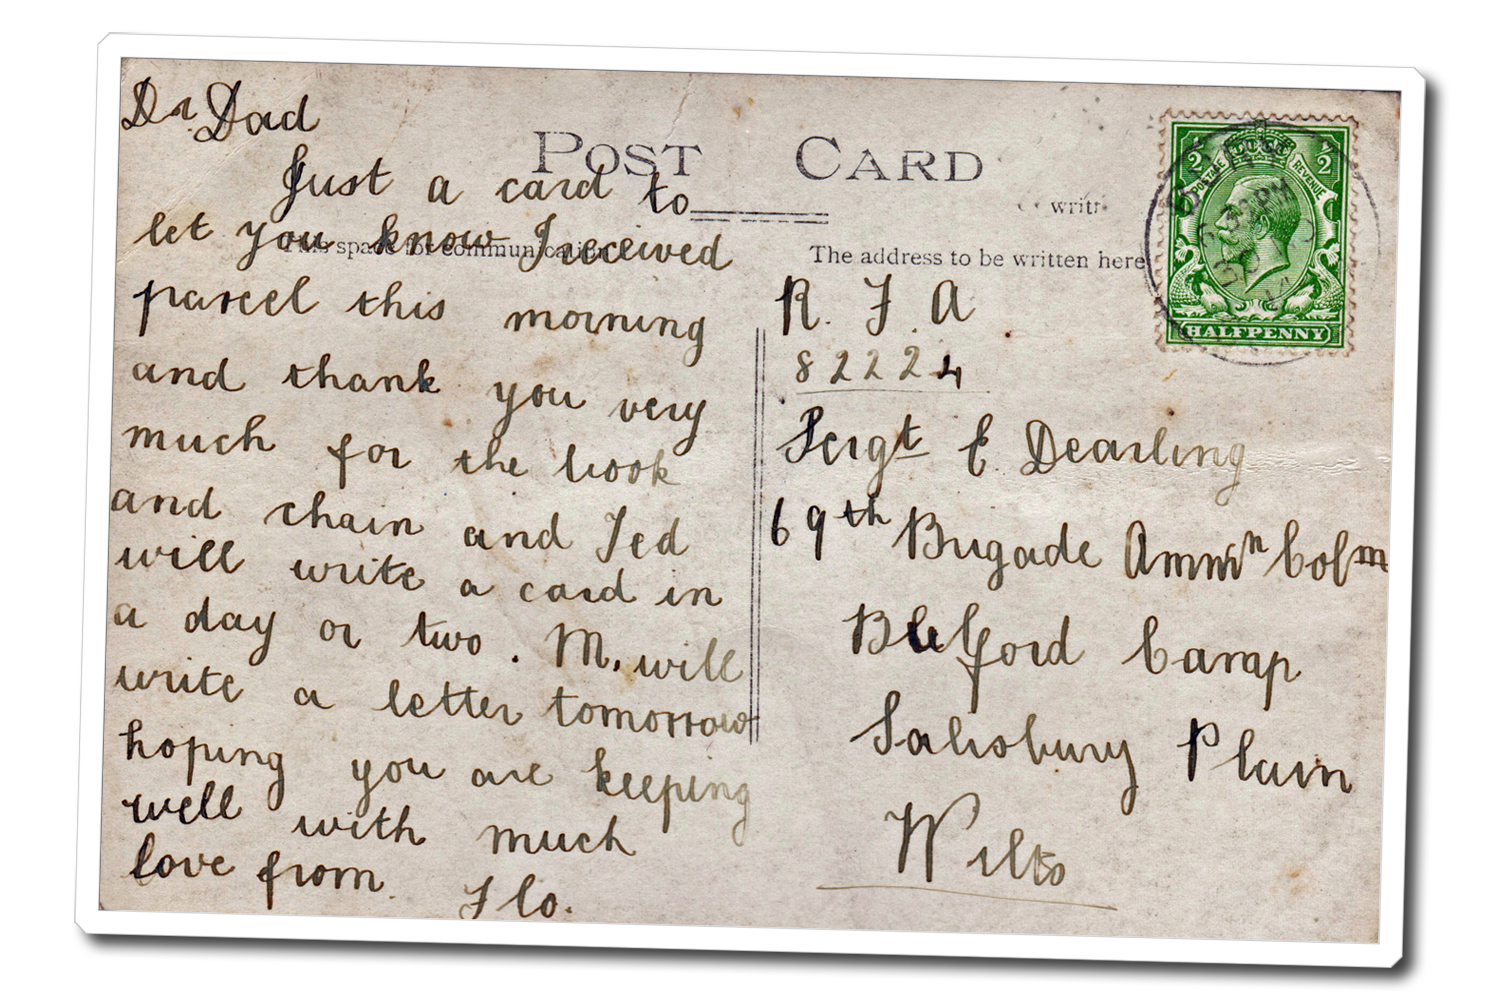 Dr. Dad
Just a card to
let you know I received
parcel this morning
and thank you very
much for the book
and chain and Ted
will write a card in
a day or two. M. will
write a letter tomorrow
hoping you are keeping
well with much
love from. Flo.
POST CARD
This space for communication
The address to be written here
R. F. A
82224
Sergt E Dearling
69th Brigade Ammn Colm
Bulford Camp
Salisbury Plain
Wilts
2 POSTAGE REVENUE 2
HALFPENNY